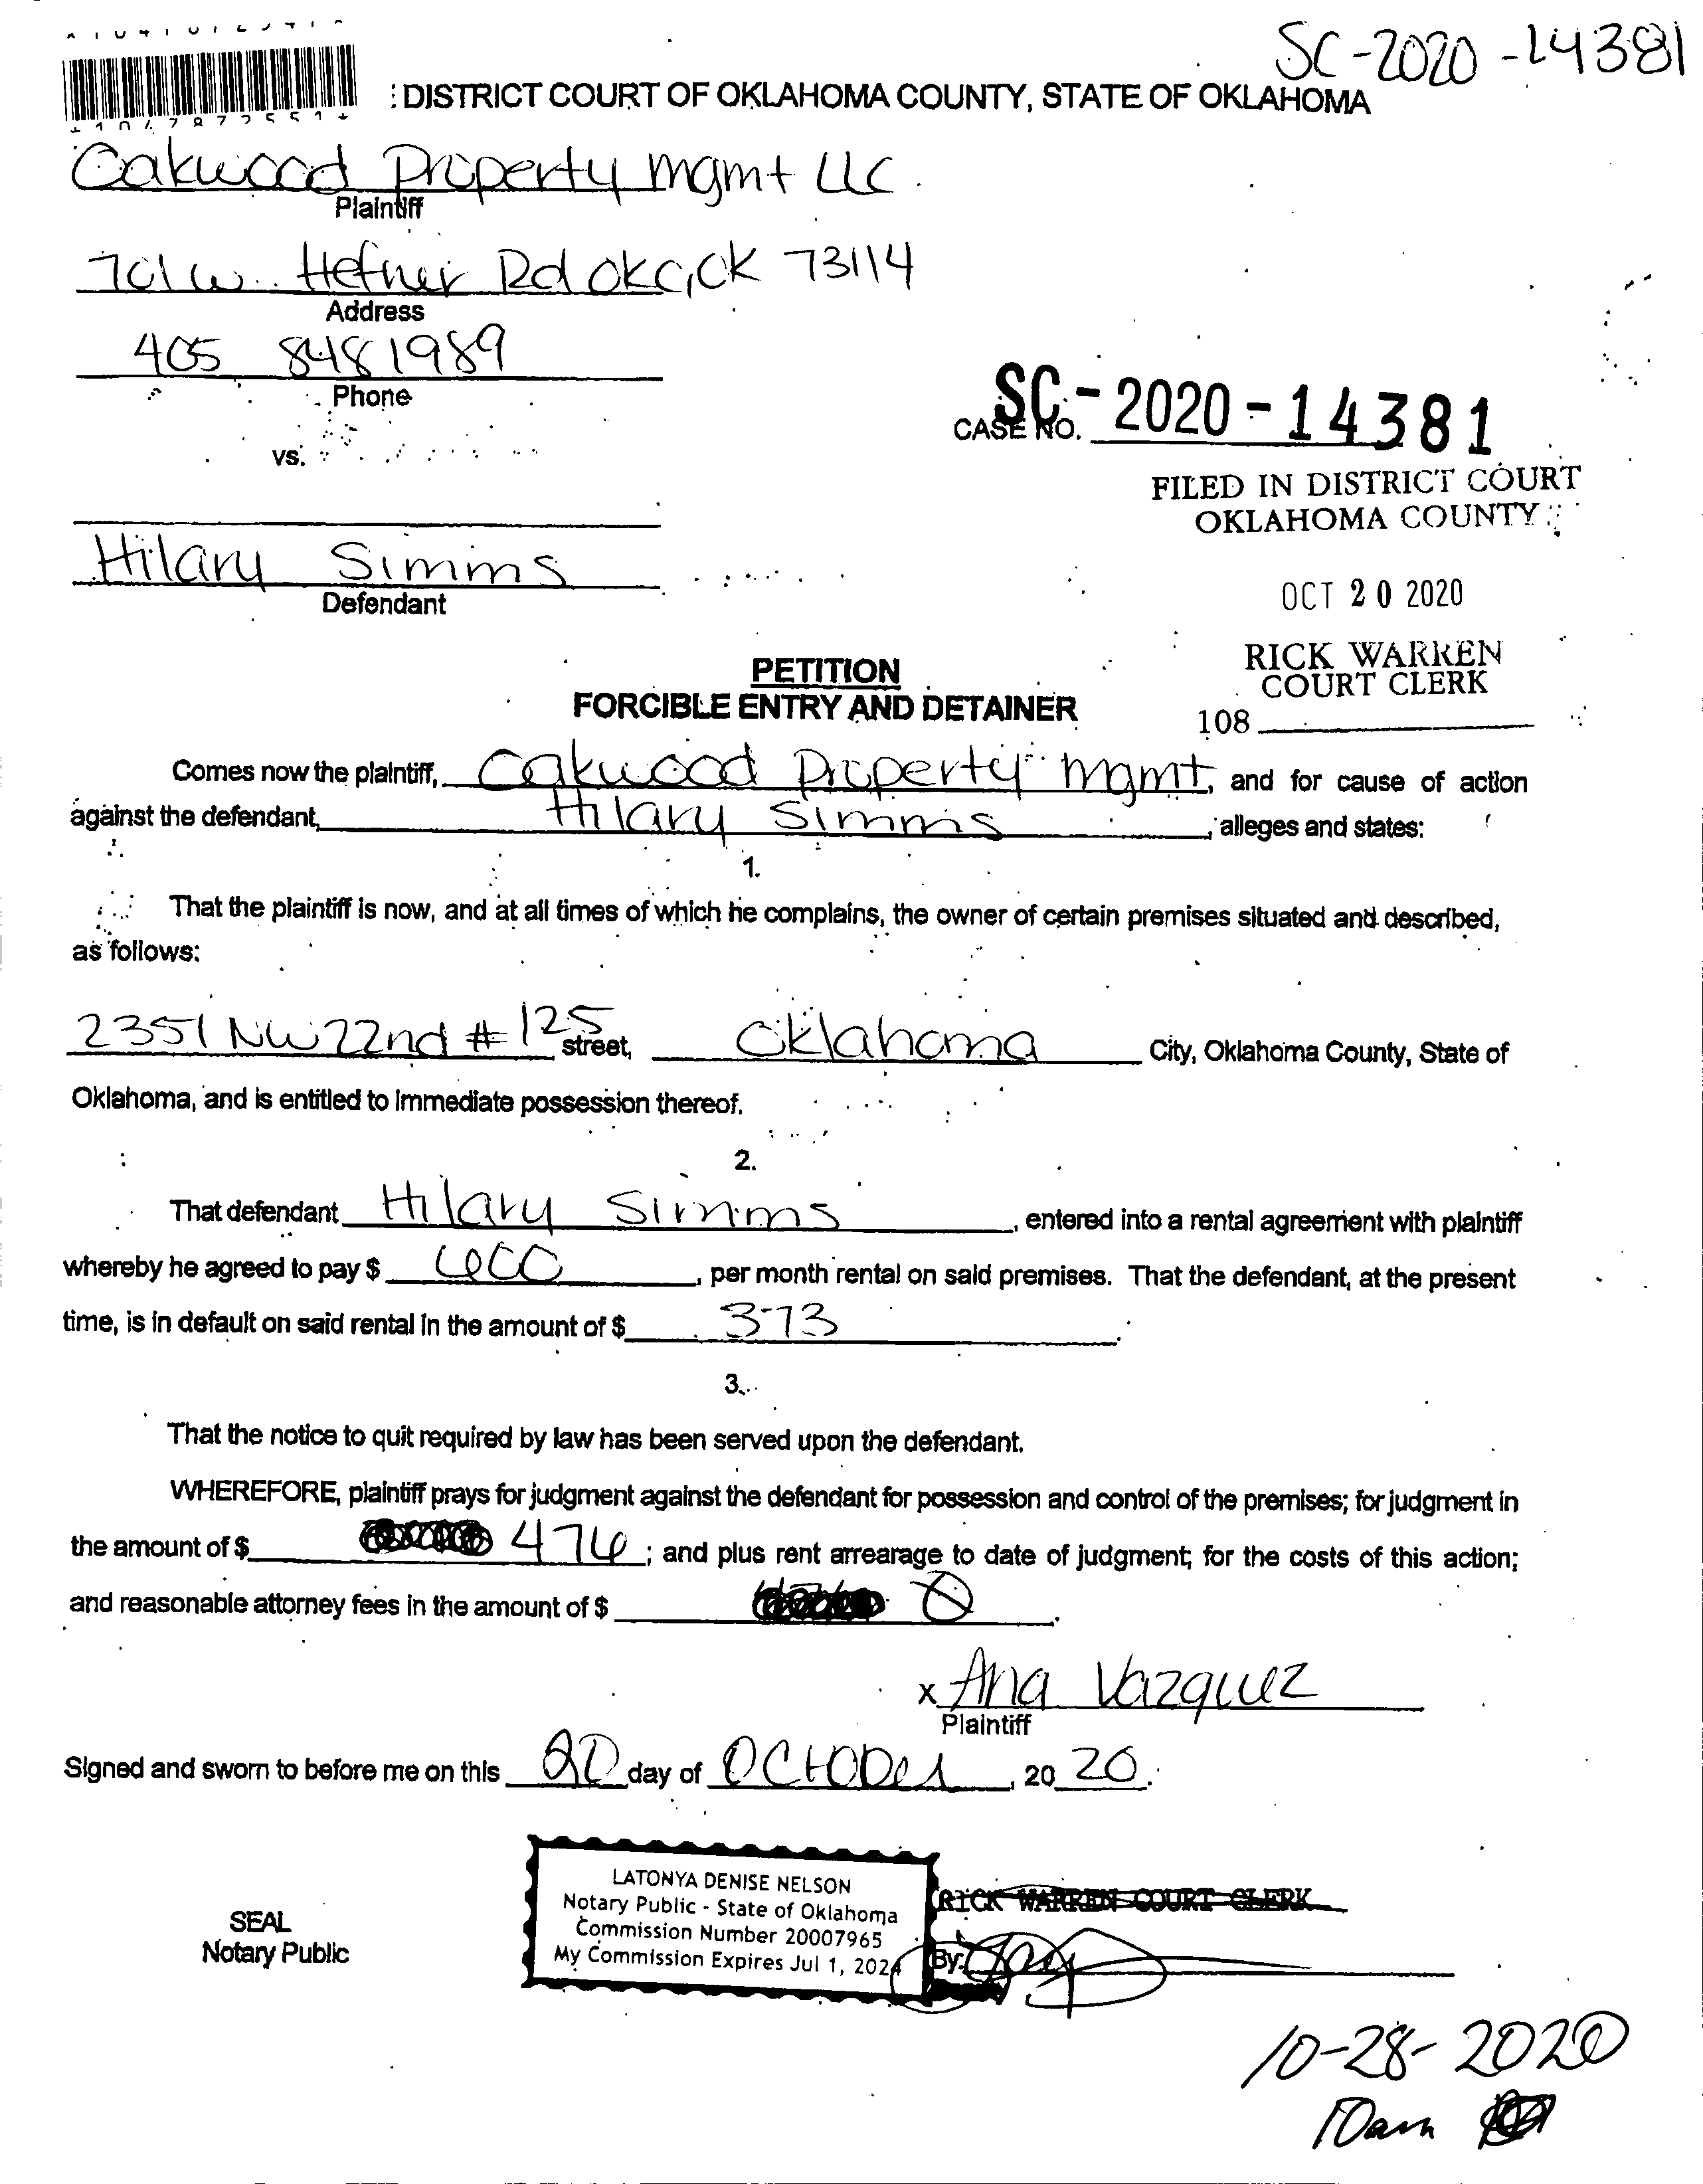 SC-2020-14381
: DISTRICT COURT OF OKLAHOMA COUNTY, STATE OF OKLAHOMA
Oakwood Property mgmt LLC
Plaintiff
701 W. Hefner Rd OKC, OK 73114
Address
405 848 1989
Phone
CASE NO. SC-2020-14381
vs.
FILED IN DISTRICT COURT
OKLAHOMA COUNTY
Hilary Simms
Defendant
OCT 20 2020
RICK WARREN
COURT CLERK
108
PETITION
FORCIBLE ENTRY AND DETAINER
Comes now the plaintiff, Oakwood Property mgmt, and for cause of action
against the defendant, Hilary Simms, alleges and states:
1.
That the plaintiff is now, and at all times of which he complains, the owner of certain premises situated and described,
as follows:
2351 NW 22nd # 125 street, Oklahoma City, Oklahoma County, State of
Oklahoma, and is entitled to immediate possession thereof.
2.
That defendant Hilary Simms, entered into a rental agreement with plaintiff
whereby he agreed to pay $ 600, per month rental on said premises. That the defendant, at the present
time, is in default on said rental in the amount of $ 373.
3.
That the notice to quit required by law has been served upon the defendant.
WHEREFORE, plaintiff prays for judgment against the defendant for possession and control of the premises; for judgment in
the amount of $ 476; and plus rent arrearage to date of judgment; for the costs of this action;
and reasonable attorney fees in the amount of $ 0.
x Ana Vazquez
Plaintiff
Signed and sworn to before me on this 20 day of October, 2020.
LATONYA DENISE NELSON
Notary Public - State of Oklahoma
Commission Number 20007965
My Commission Expires Jul 1, 2024
SEAL
Notary Public
RICK WARREN COURT CLERK
By:
10-28-2020
10am